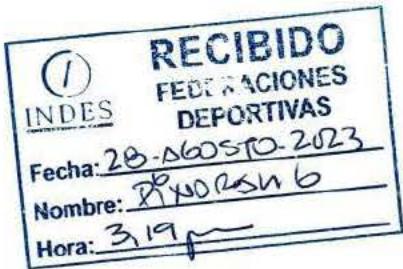 RECIBIDO
INDES
FEDERACIONES
DEPORTIVAS
Fecha: 28-AGOSTO-2023
Nombre:
Hora: 3,19 pm